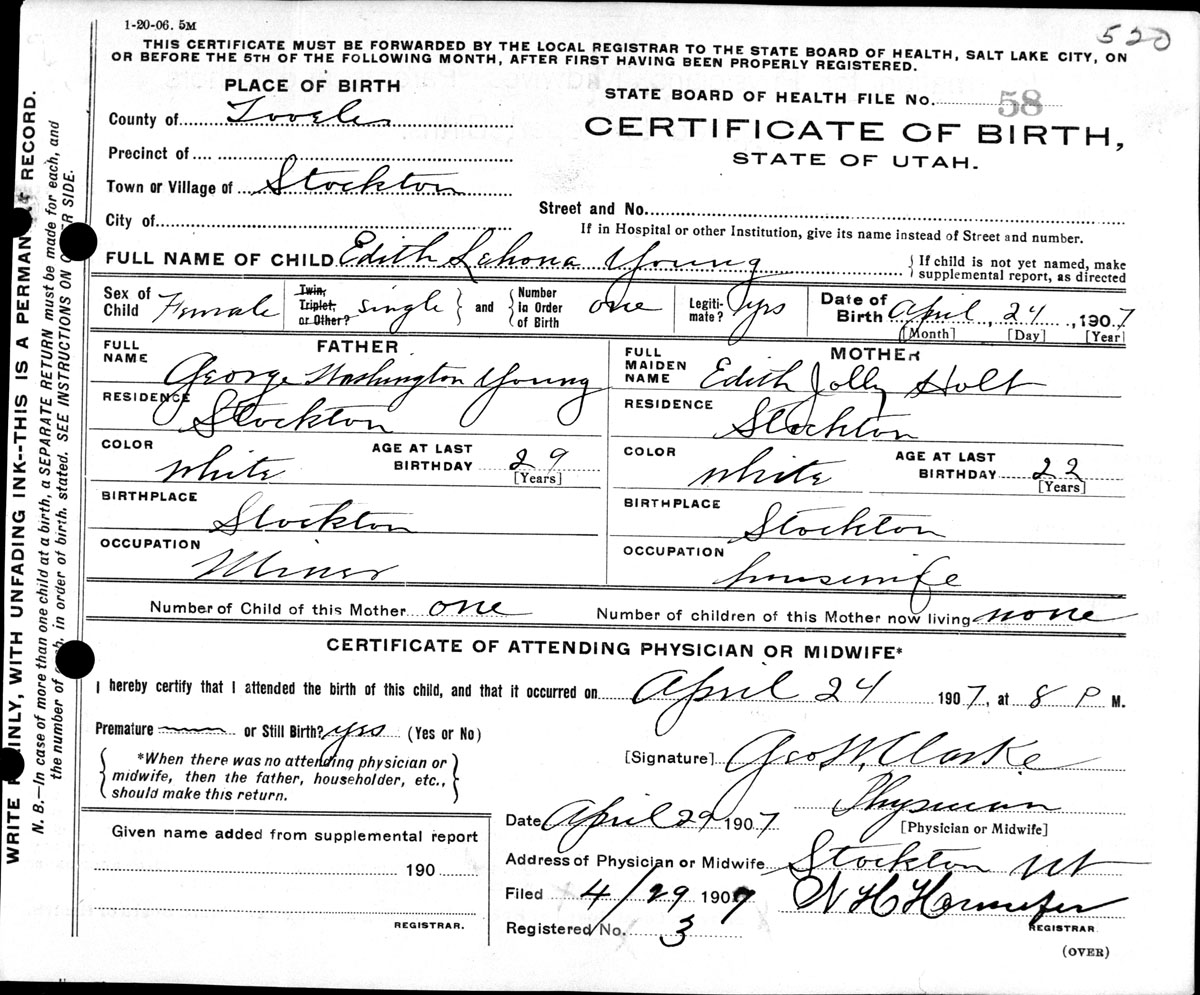 1-20-06. 5M
520
THIS CERTIFICATE MUST BE FORWARDED BY THE LOCAL REGISTRAR TO THE STATE BOARD OF HEALTH, SALT LAKE CITY, ON
OR BEFORE THE 5TH OF THE FOLLOWING MONTH, AFTER FIRST HAVING BEEN PROPERLY REGISTERED.
PLACE OF BIRTH
STATE BOARD OF HEALTH FILE No. 58
County of Tooele
CERTIFICATE OF BIRTH,
STATE OF UTAH.
Precinct of
Town or Village of Stockton
Street and No.
City of
If in Hospital or other Institution, give its name instead of Street and number.
FULL NAME OF CHILD Edith Lehona Young { If child is not yet named, make
supplemental report, as directed
Sex of Child Female Twin, Triplet, or Other? single } and { Number in Order of Birth one Legiti-mate? yes Date of Birth April 24, 1907
[Month] [Day] [Year]
FATHER
FULL NAME George Washington Young
RESIDENCE Stockton
COLOR white AGE AT LAST BIRTHDAY 29
[Years]
BIRTHPLACE Stockton
OCCUPATION Miner
MOTHER
FULL MAIDEN NAME Edith Jolly Holt
RESIDENCE Stockton
COLOR white AGE AT LAST BIRTHDAY 22
[Years]
BIRTHPLACE Stockton
OCCUPATION housewife
Number of Child of this Mother one Number of children of this Mother now living none
CERTIFICATE OF ATTENDING PHYSICIAN OR MIDWIFE*
I hereby certify that I attended the birth of this child, and that it occurred on April 24 1907, at 8 P M.
Premature — or Still Birth? yes (Yes or No)
{ *When there was no attending physician or
midwife, then the father, householder, etc.,
should make this return. }
[Signature] Geo W. Clarke
Physician
[Physician or Midwife]
Date April 29 1907
Address of Physician or Midwife Stockton Ut
Filed 4/29 1907 N H
REGISTRAR
Registered No. 3
(OVER)
Given name added from supplemental report
190
REGISTRAR.
WRITE PLAINLY, WITH UNFADING INK--THIS IS A PERMANENT RECORD.
N. B.—In case of more than one child at a birth, a SEPARATE RETURN must be made for each, and
the number of each, in order of birth, stated. SEE INSTRUCTIONS ON OTHER SIDE.